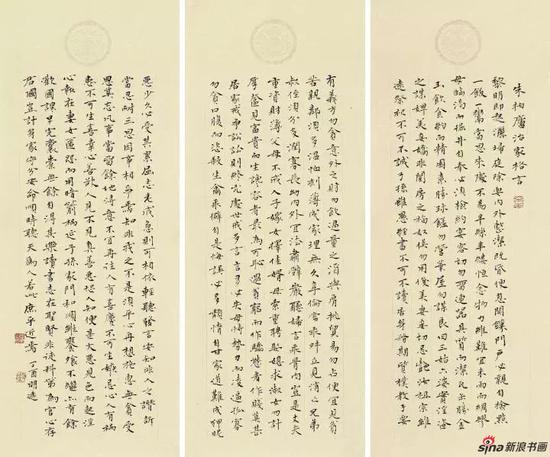 朱柏廬治家格言
黎明即起灑掃庭除要內外整潔既昏便息關鎖門戶必親自檢點
一飯一粥當思來處不易半絲半縷恒念物力維艱宜未雨而綢繆
毋臨渴而掘井自奉必須儉約宴客切勿留連器具質而潔瓦缶勝金
玉飲食約而精園蔬勝珍饈勿營華屋勿謀良田三姑六婆實淫盜
之媒婢美妾嬌非閨房之福奴僕勿用俊美妻妾切忌艷妝祖宗雖
遠祭祀不可不誠子孫雖愚經書不可不讀居身務期質樸教子要
有義方勿貪意外之財勿飲過量之酒與肩挑貿易勿占便宜見貧
苦親鄰須多溫恤刻薄成家理無久享倫常乖舛立見消亡兄弟
叔侄須分多潤寡長幼內外宜法肅辭嚴聽婦言乖骨肉豈是丈夫
重資財薄父母不成人子嫁女擇佳婿毋索重聘娶媳求淑女勿計
厚奩見富貴而生諂容者最為可恥遇貧窮而作驕態者賤莫甚
居家戒爭訟訟則終凶處世戒多言言多必失毋恃勢力而凌逼孤寡
勿貪口腹而恣殺生禽乖僻自是悔誤必多頹惰自甘家道難成狎昵
惡少久必受其累屈志老成急則可相依輕聽發言安知非人之譖訴
當忍耐三思因事相爭焉知非我之不是須平心再想施惠無念受
恩莫忘凡事當留餘地得意不宜再往人有喜慶不可生妒忌心人有禍
患不可生喜幸心善欲人見不是真善惡恐人知便是大惡見色而起淫
心報在妻女匿怨而用暗箭禍延子孫家門和順雖饔飧不繼亦有餘
歡國課早完囊橐無餘自得其樂讀書志在聖賢非徒科第為官心存
君國豈計身家守分安命順時聽天為人若此庶乎近焉 丁酉
sina新浪书画